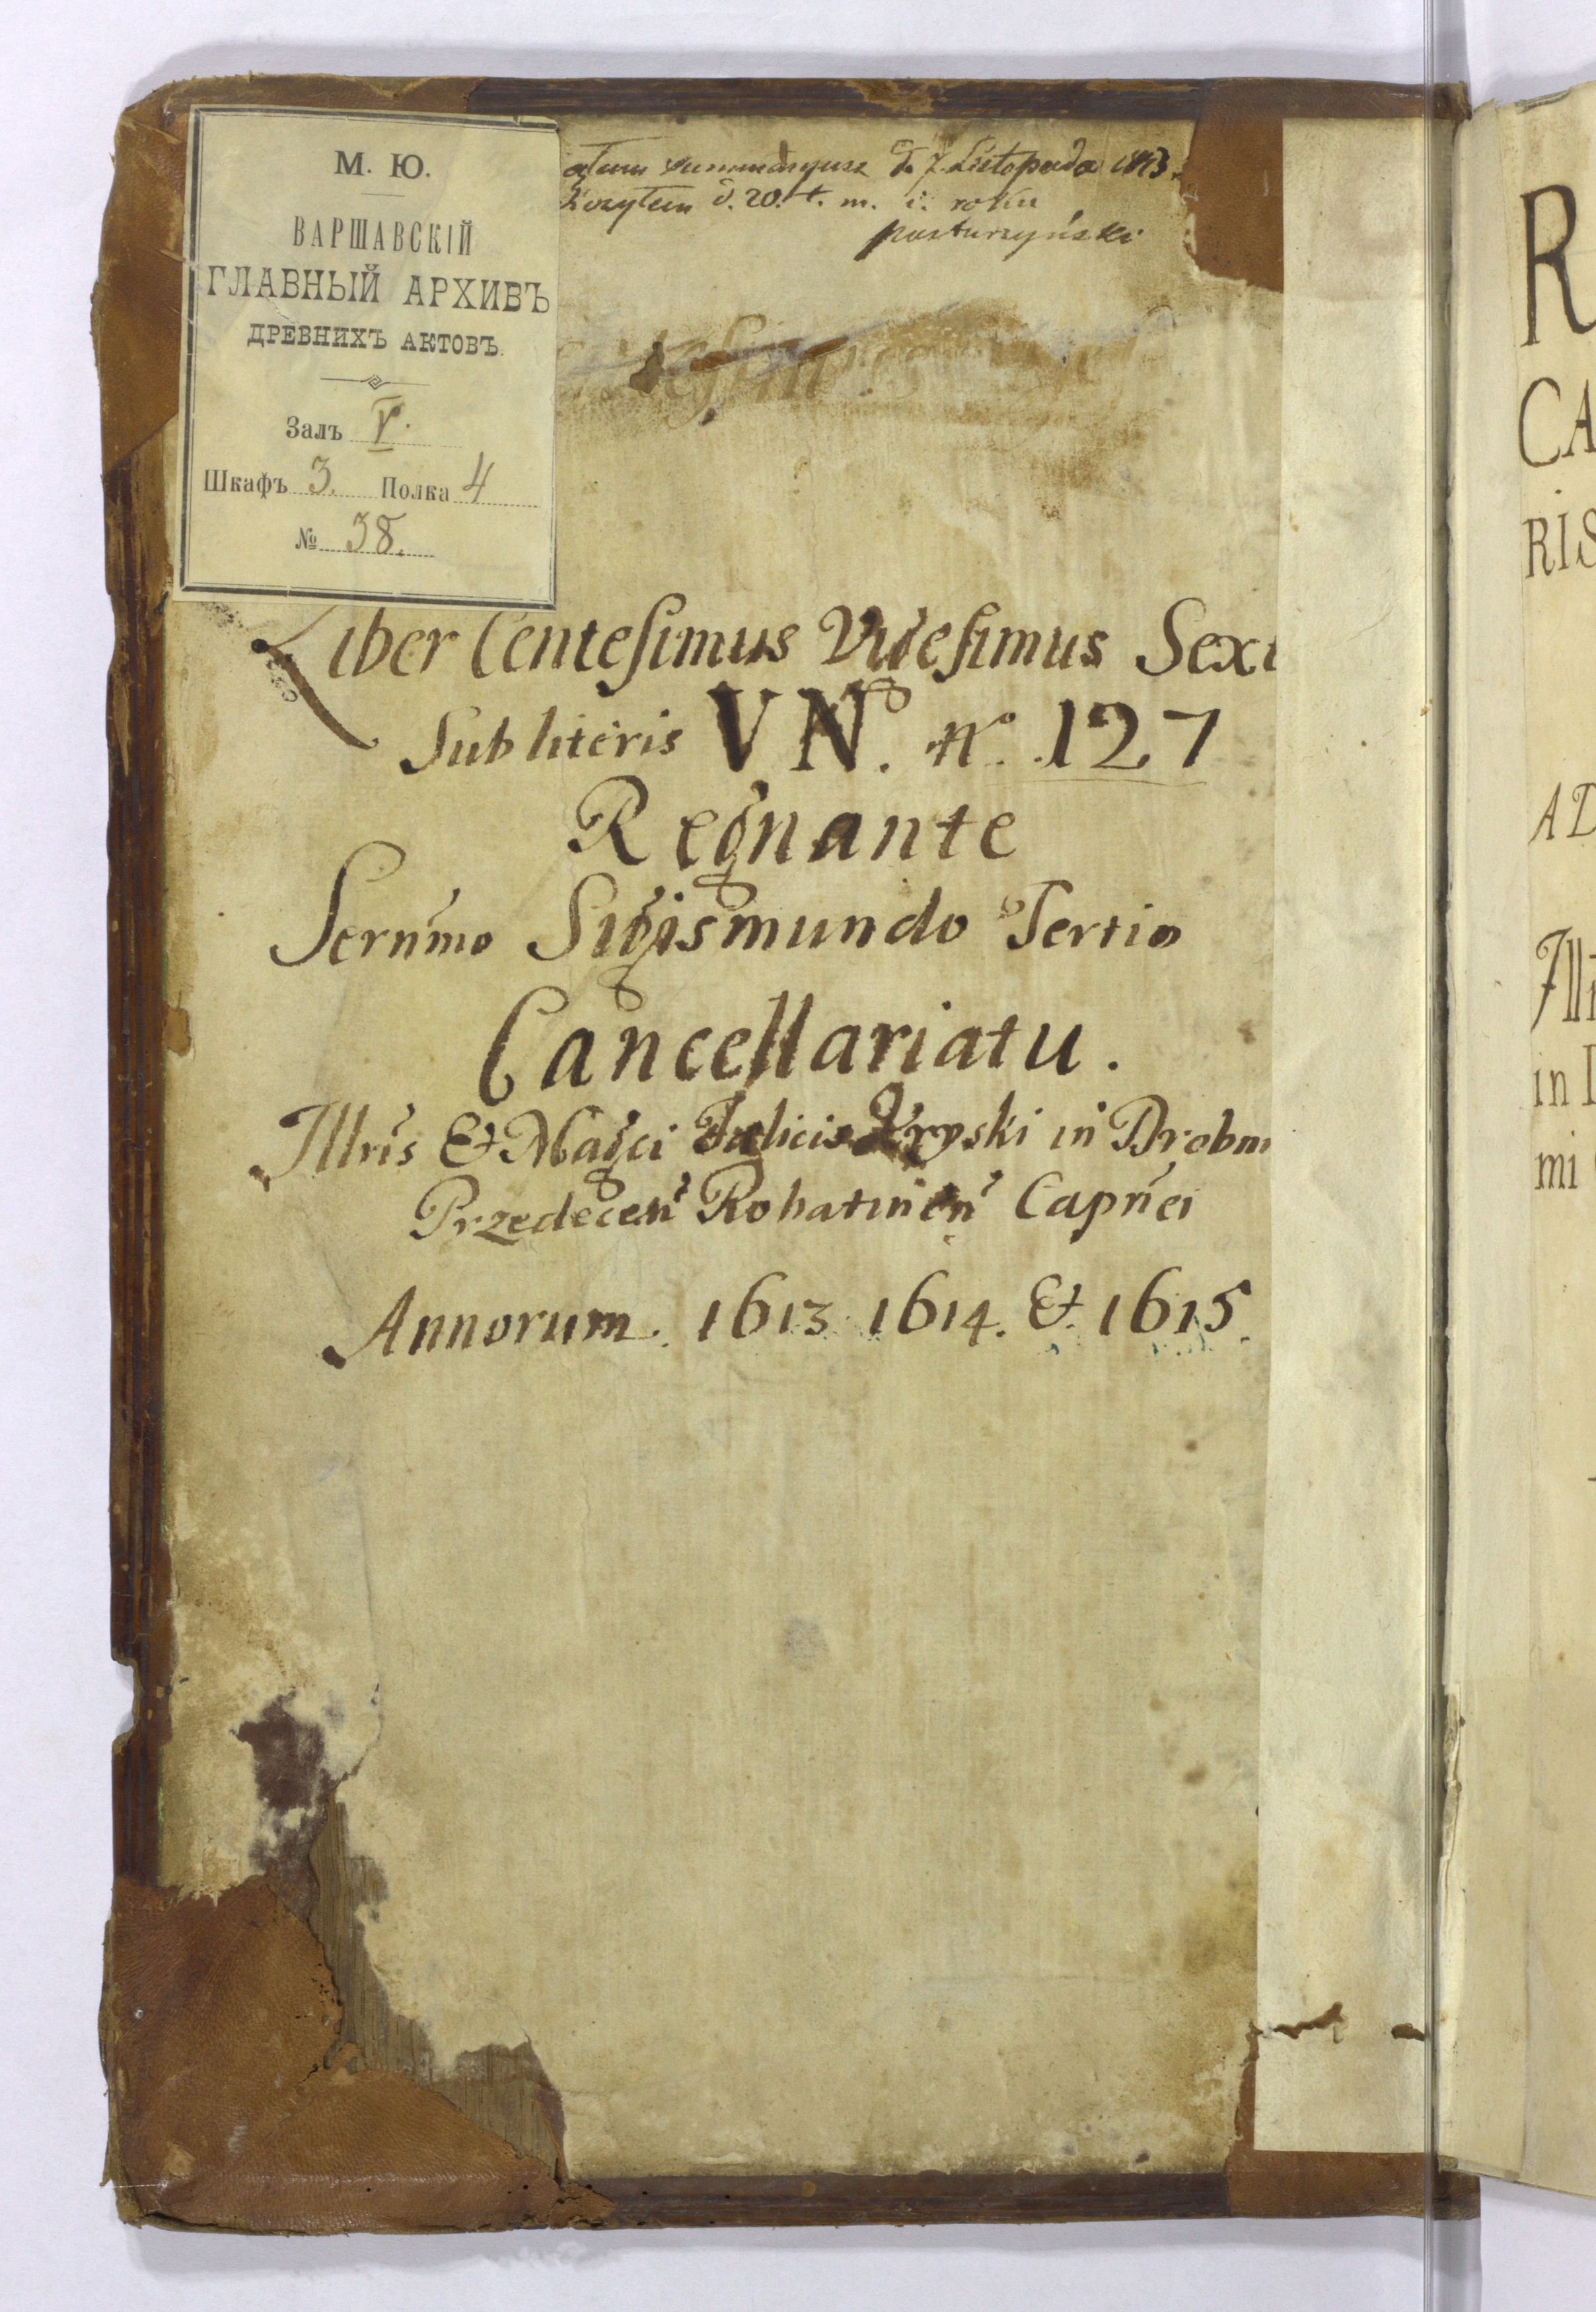 М. Ю.
ВАРШАВСКІЙ
ГЛАВНЫЙ АРХИВЪ
ДРЕВНИХЪ АКТОВЪ.
Залъ V.
Шкафъ 3. Полка 4
№ 38.
d. 7. Listopada
d. 20. t. m. i. roku
Liber Centesimus Vigesimus Sext
Sub literis VN. No. 127
Regnante
Sernmo Sigismundo Tertio
Cancellariatu.
Illris Et Magci Fœlicis Kryski in Drobni
Przedecen Rohatinen Capnei
Annorum. 1613 1614. Et. 1615.
R
CA
RIS
AD
Ill
in
mi